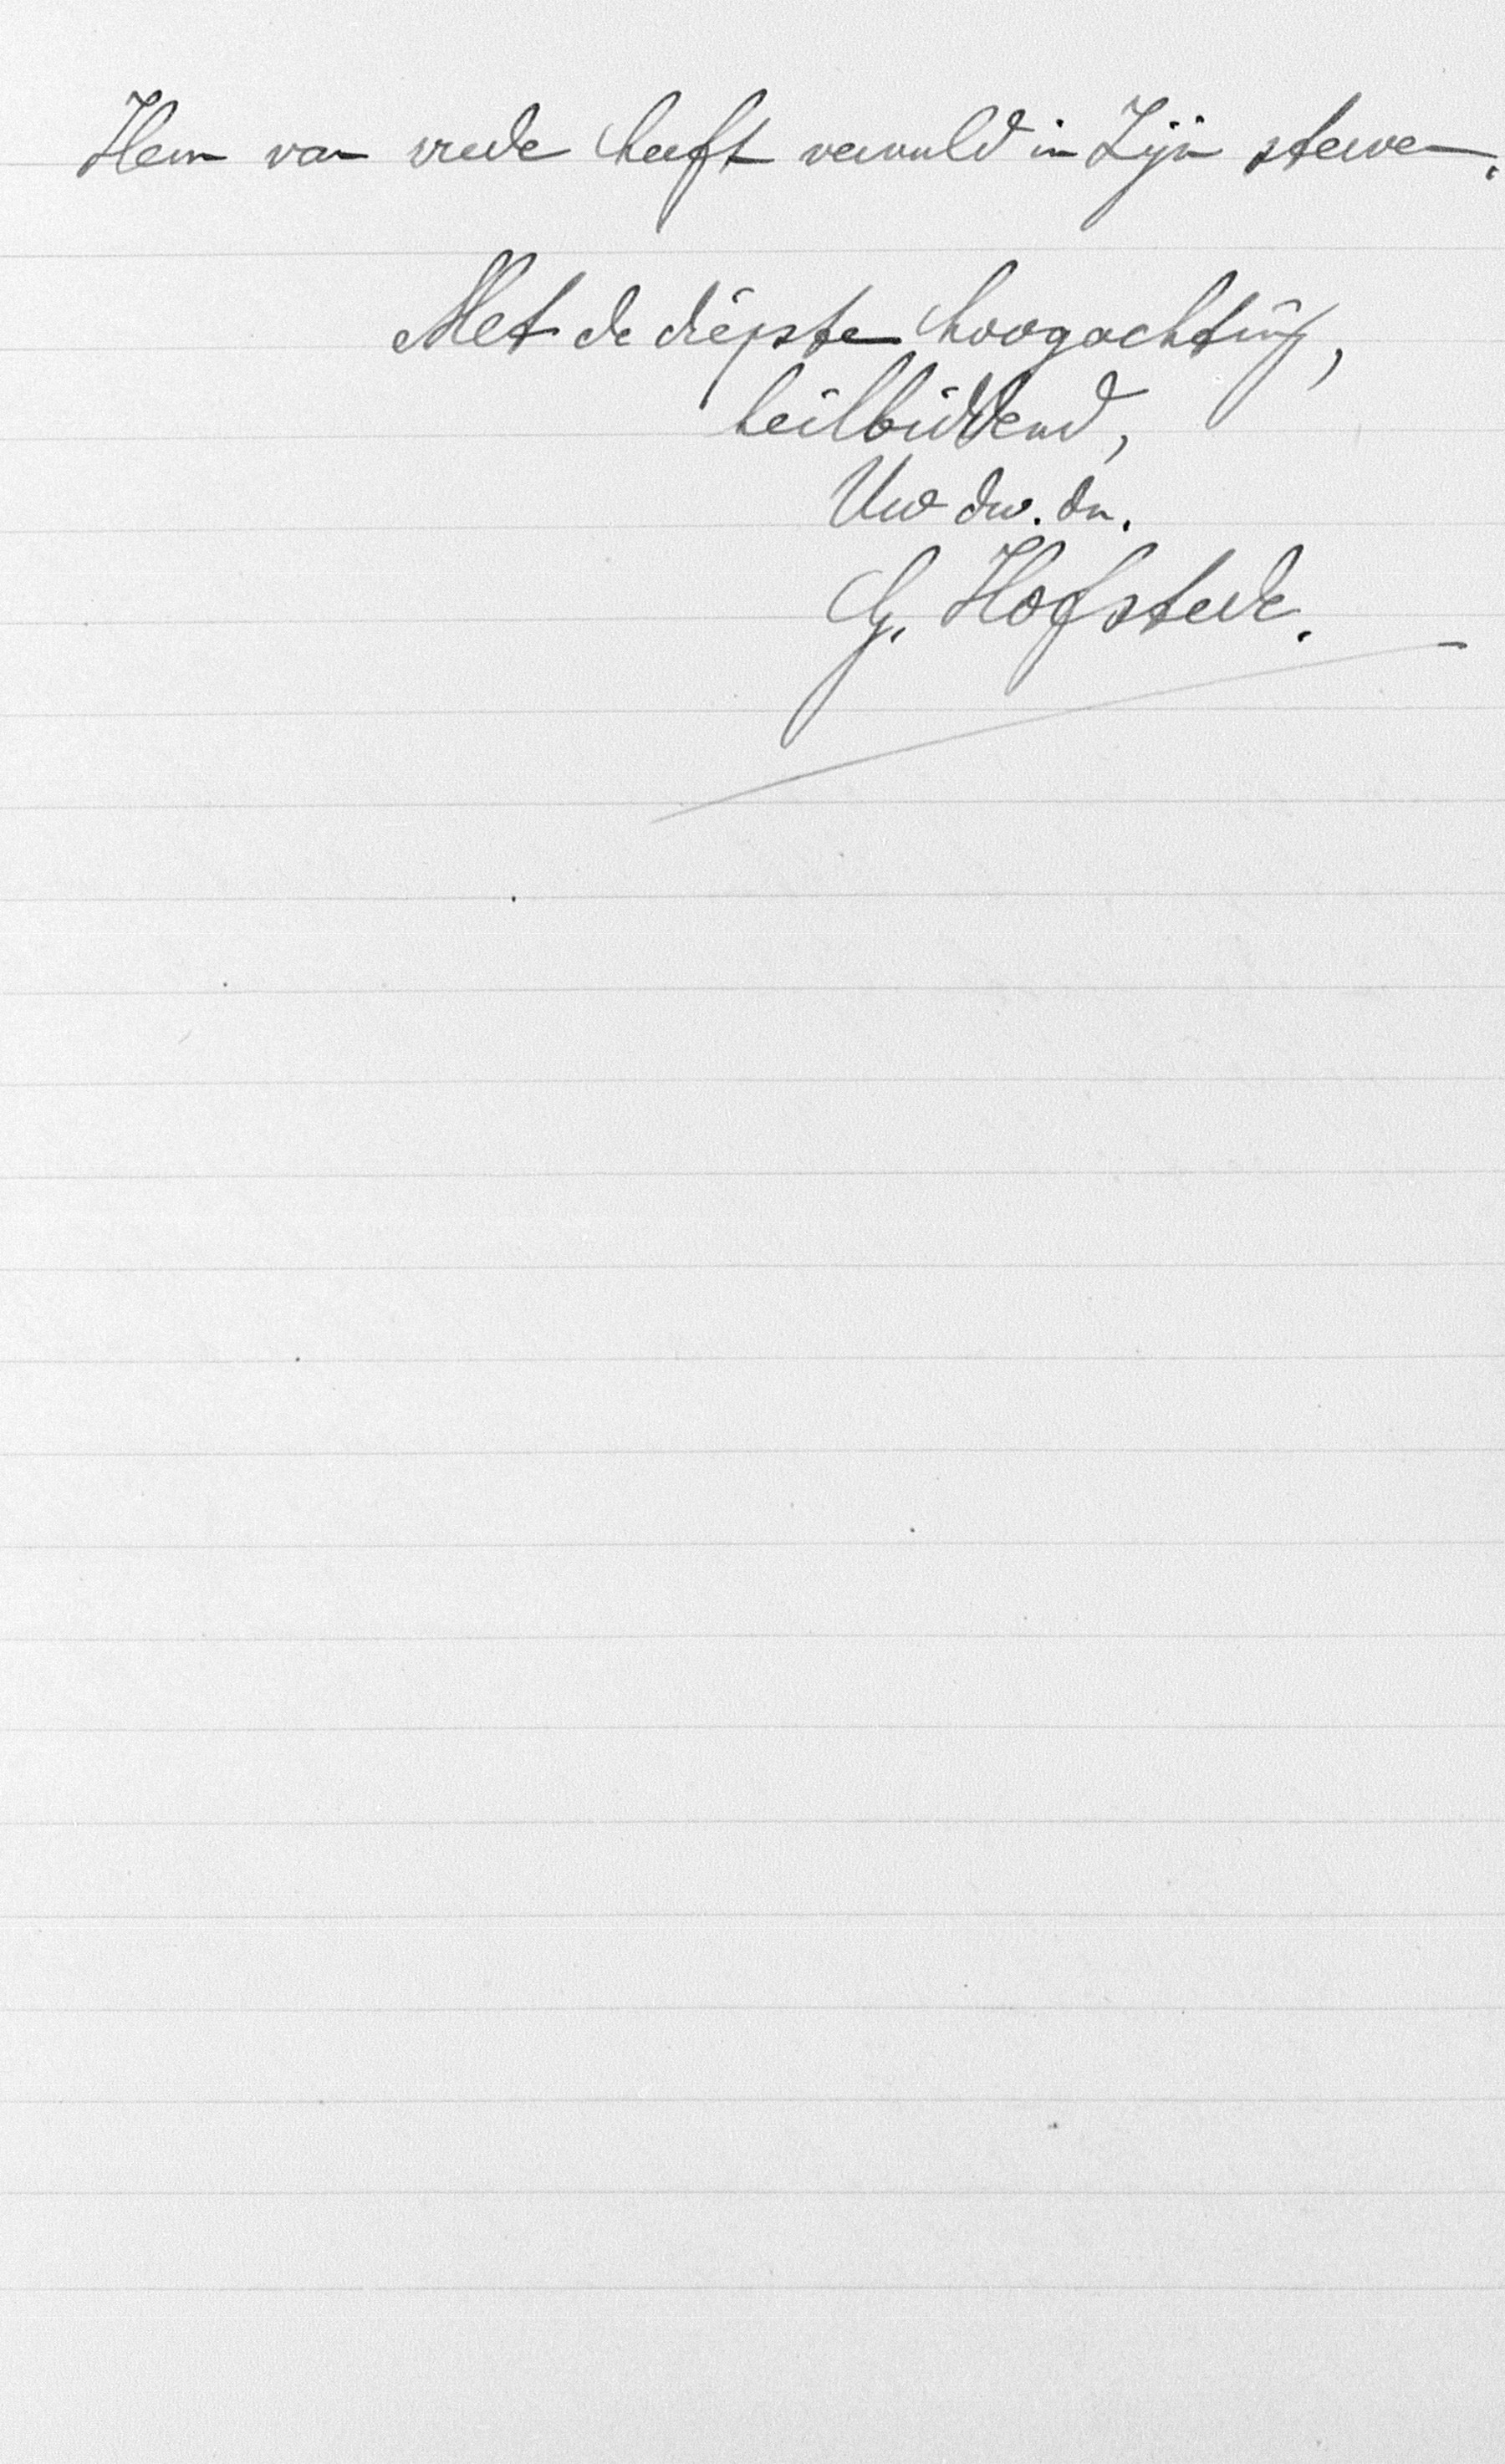 Hem van vrede heeft vervuld in Zijn sterven.
Met de diepste hoogachting,
heilbiddend,
Uw dw. dn.
G. Hofstede.